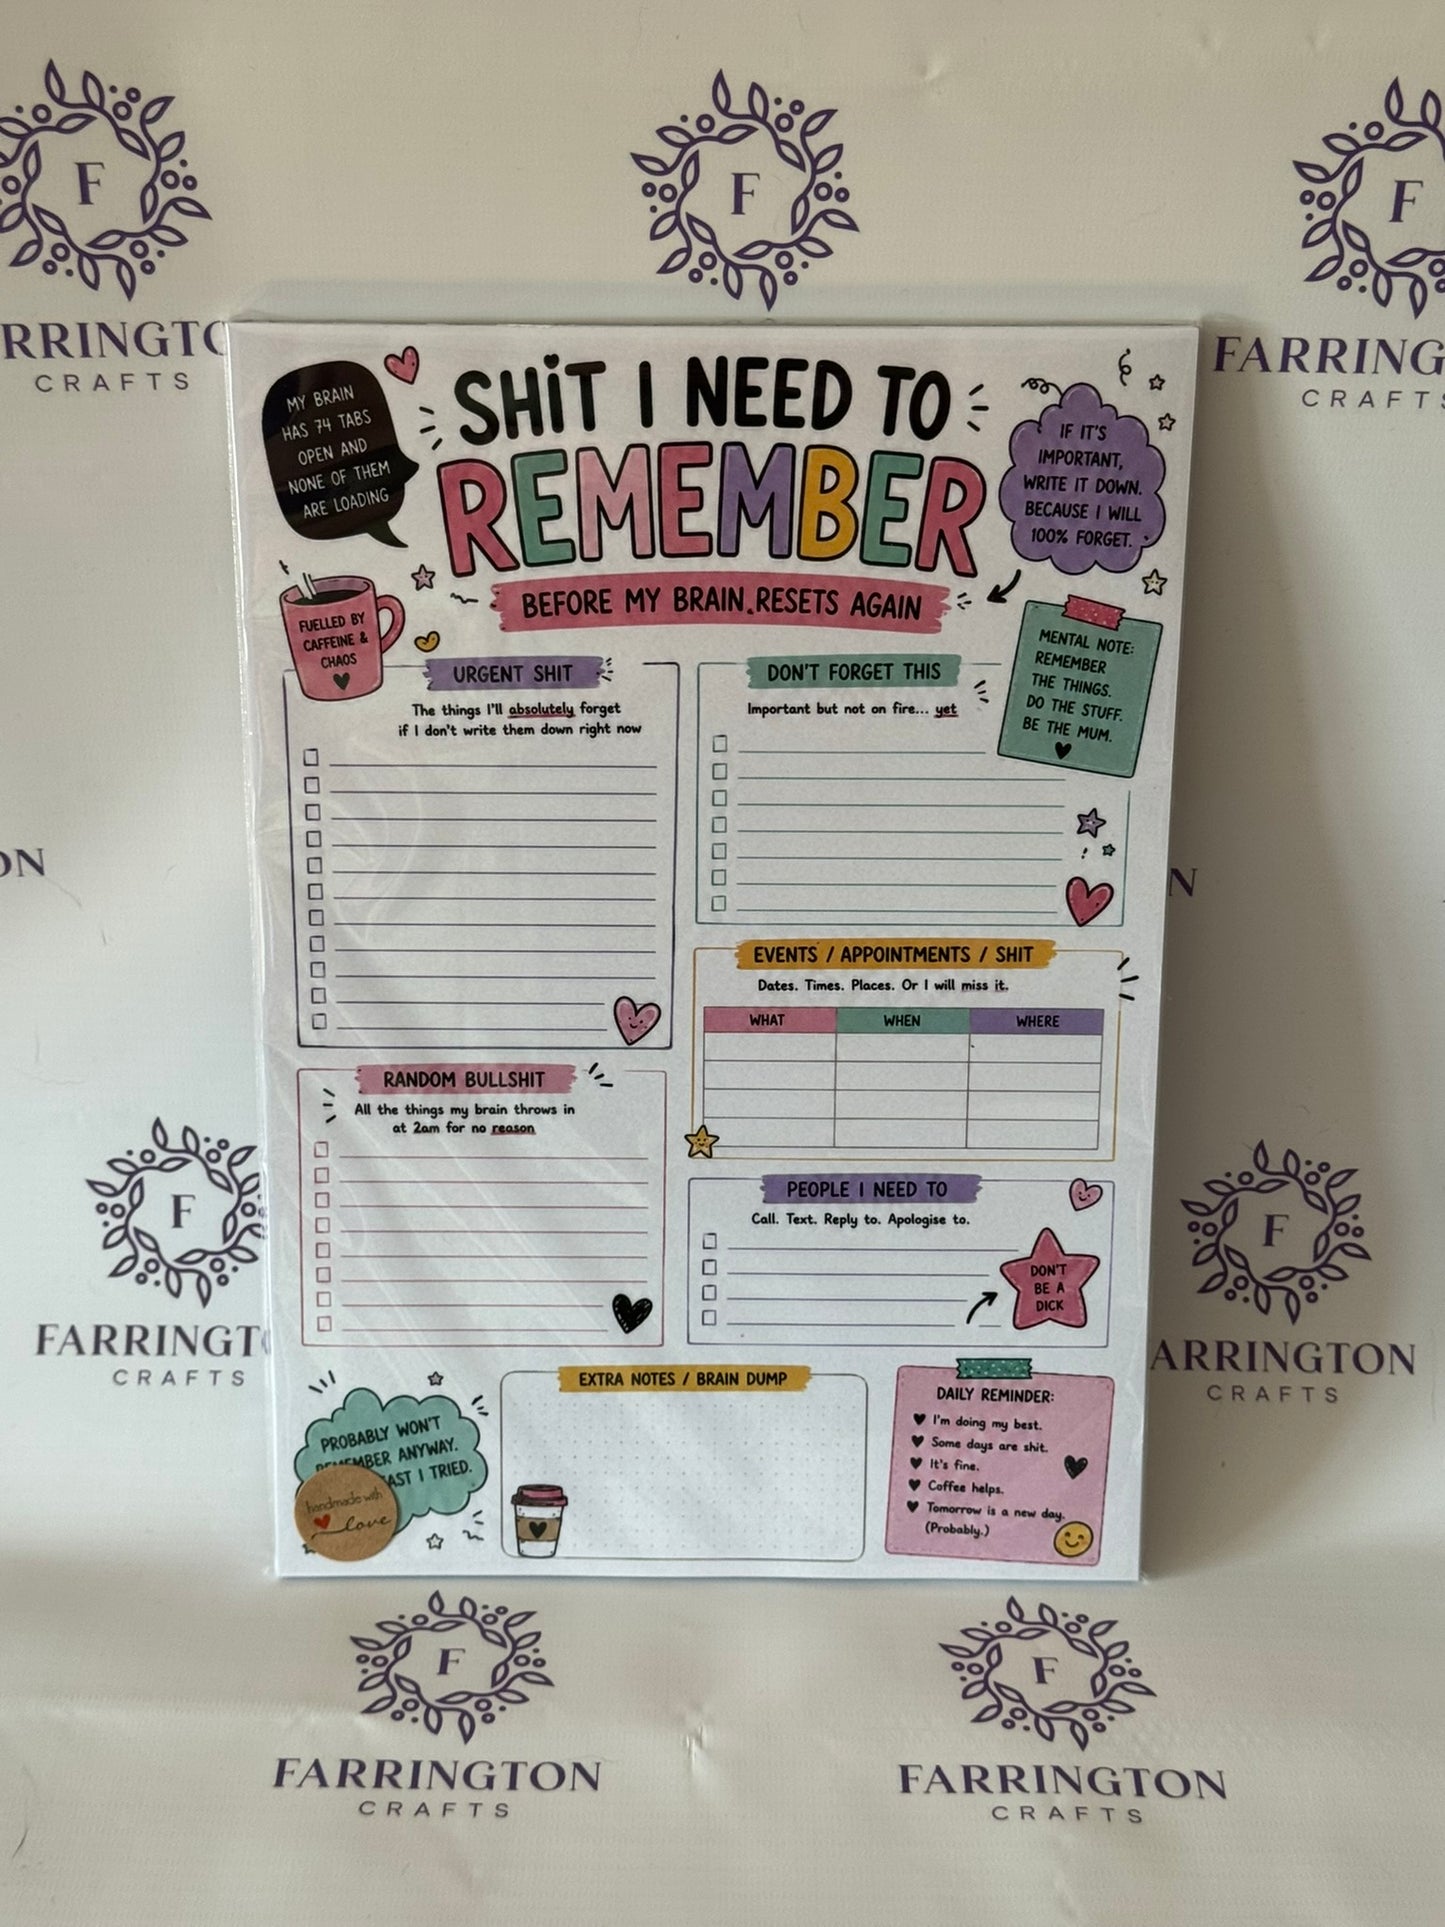 F
F
F
RRINGTO
CRAFTS
FARRING
CRAFTS
MY BRAIN
HAS 74 TABS
OPEN AND
NONE OF THEM
ARE LOADING
SHIT I NEED TO
REMEMBER
BEFORE MY BRAIN.RESETS AGAIN
IF IT'S
IMPORTANT,
WRITE IT DOWN.
BECAUSE I WILL
100% FORGET.
FUELLED BY
CAFFEINE &
CHAOS
MENTAL NOTE:
REMEMBER
THE THINGS.
DO THE STUFF.
BE THE MUM.
URGENT SHIT
The things I'll absolutely forget
if I don't write them down right now
DON'T FORGET THIS
Important but not on fire... yet
ON
N
EVENTS / APPOINTMENTS / SHIT
Dates. Times. Places. Or I will miss it.
WHAT WHEN WHERE
RANDOM BULLSHIT
All the things my brain throws in
at 2am for no reason
PEOPLE I NEED TO
Call. Text. Reply to. Apologise to.
DON'T
BE A
DICK
F
FARRINGT
CRAFTS
F
ARRINGTON
CRAFTS
PROBABLY WON'T
MEMBER ANYWAY.
AST I TRIED.
handmade with
love
EXTRA NOTES / BRAIN DUMP
DAILY REMINDER:
I'm doing my best.
Some days are shit.
It's fine.
Coffee helps.
Tomorrow is a new day.
(Probably.)
F
FARRINGTON
CRAFTS
F
FARRINGTON
CRAFTS